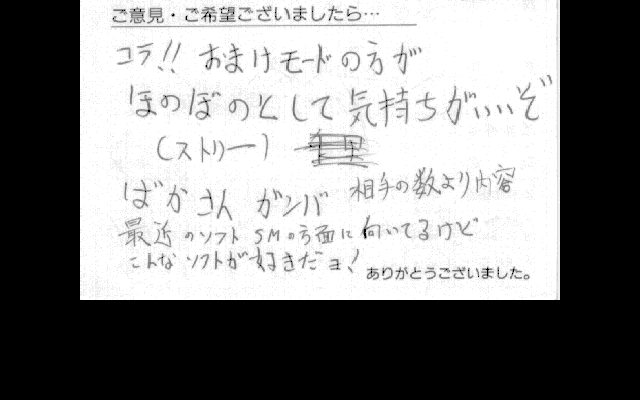 ご意見・ご希望ございましたら…
コラ!! おまけモードの方が
ほのぼのとして気持ちがいいぞ
(ストリー)
相手の数より内容
ばかさん ガンバ
最近のソフトSMの方面に向いてるけど
こんなソフトが好きだョ!
ありがとうございました。